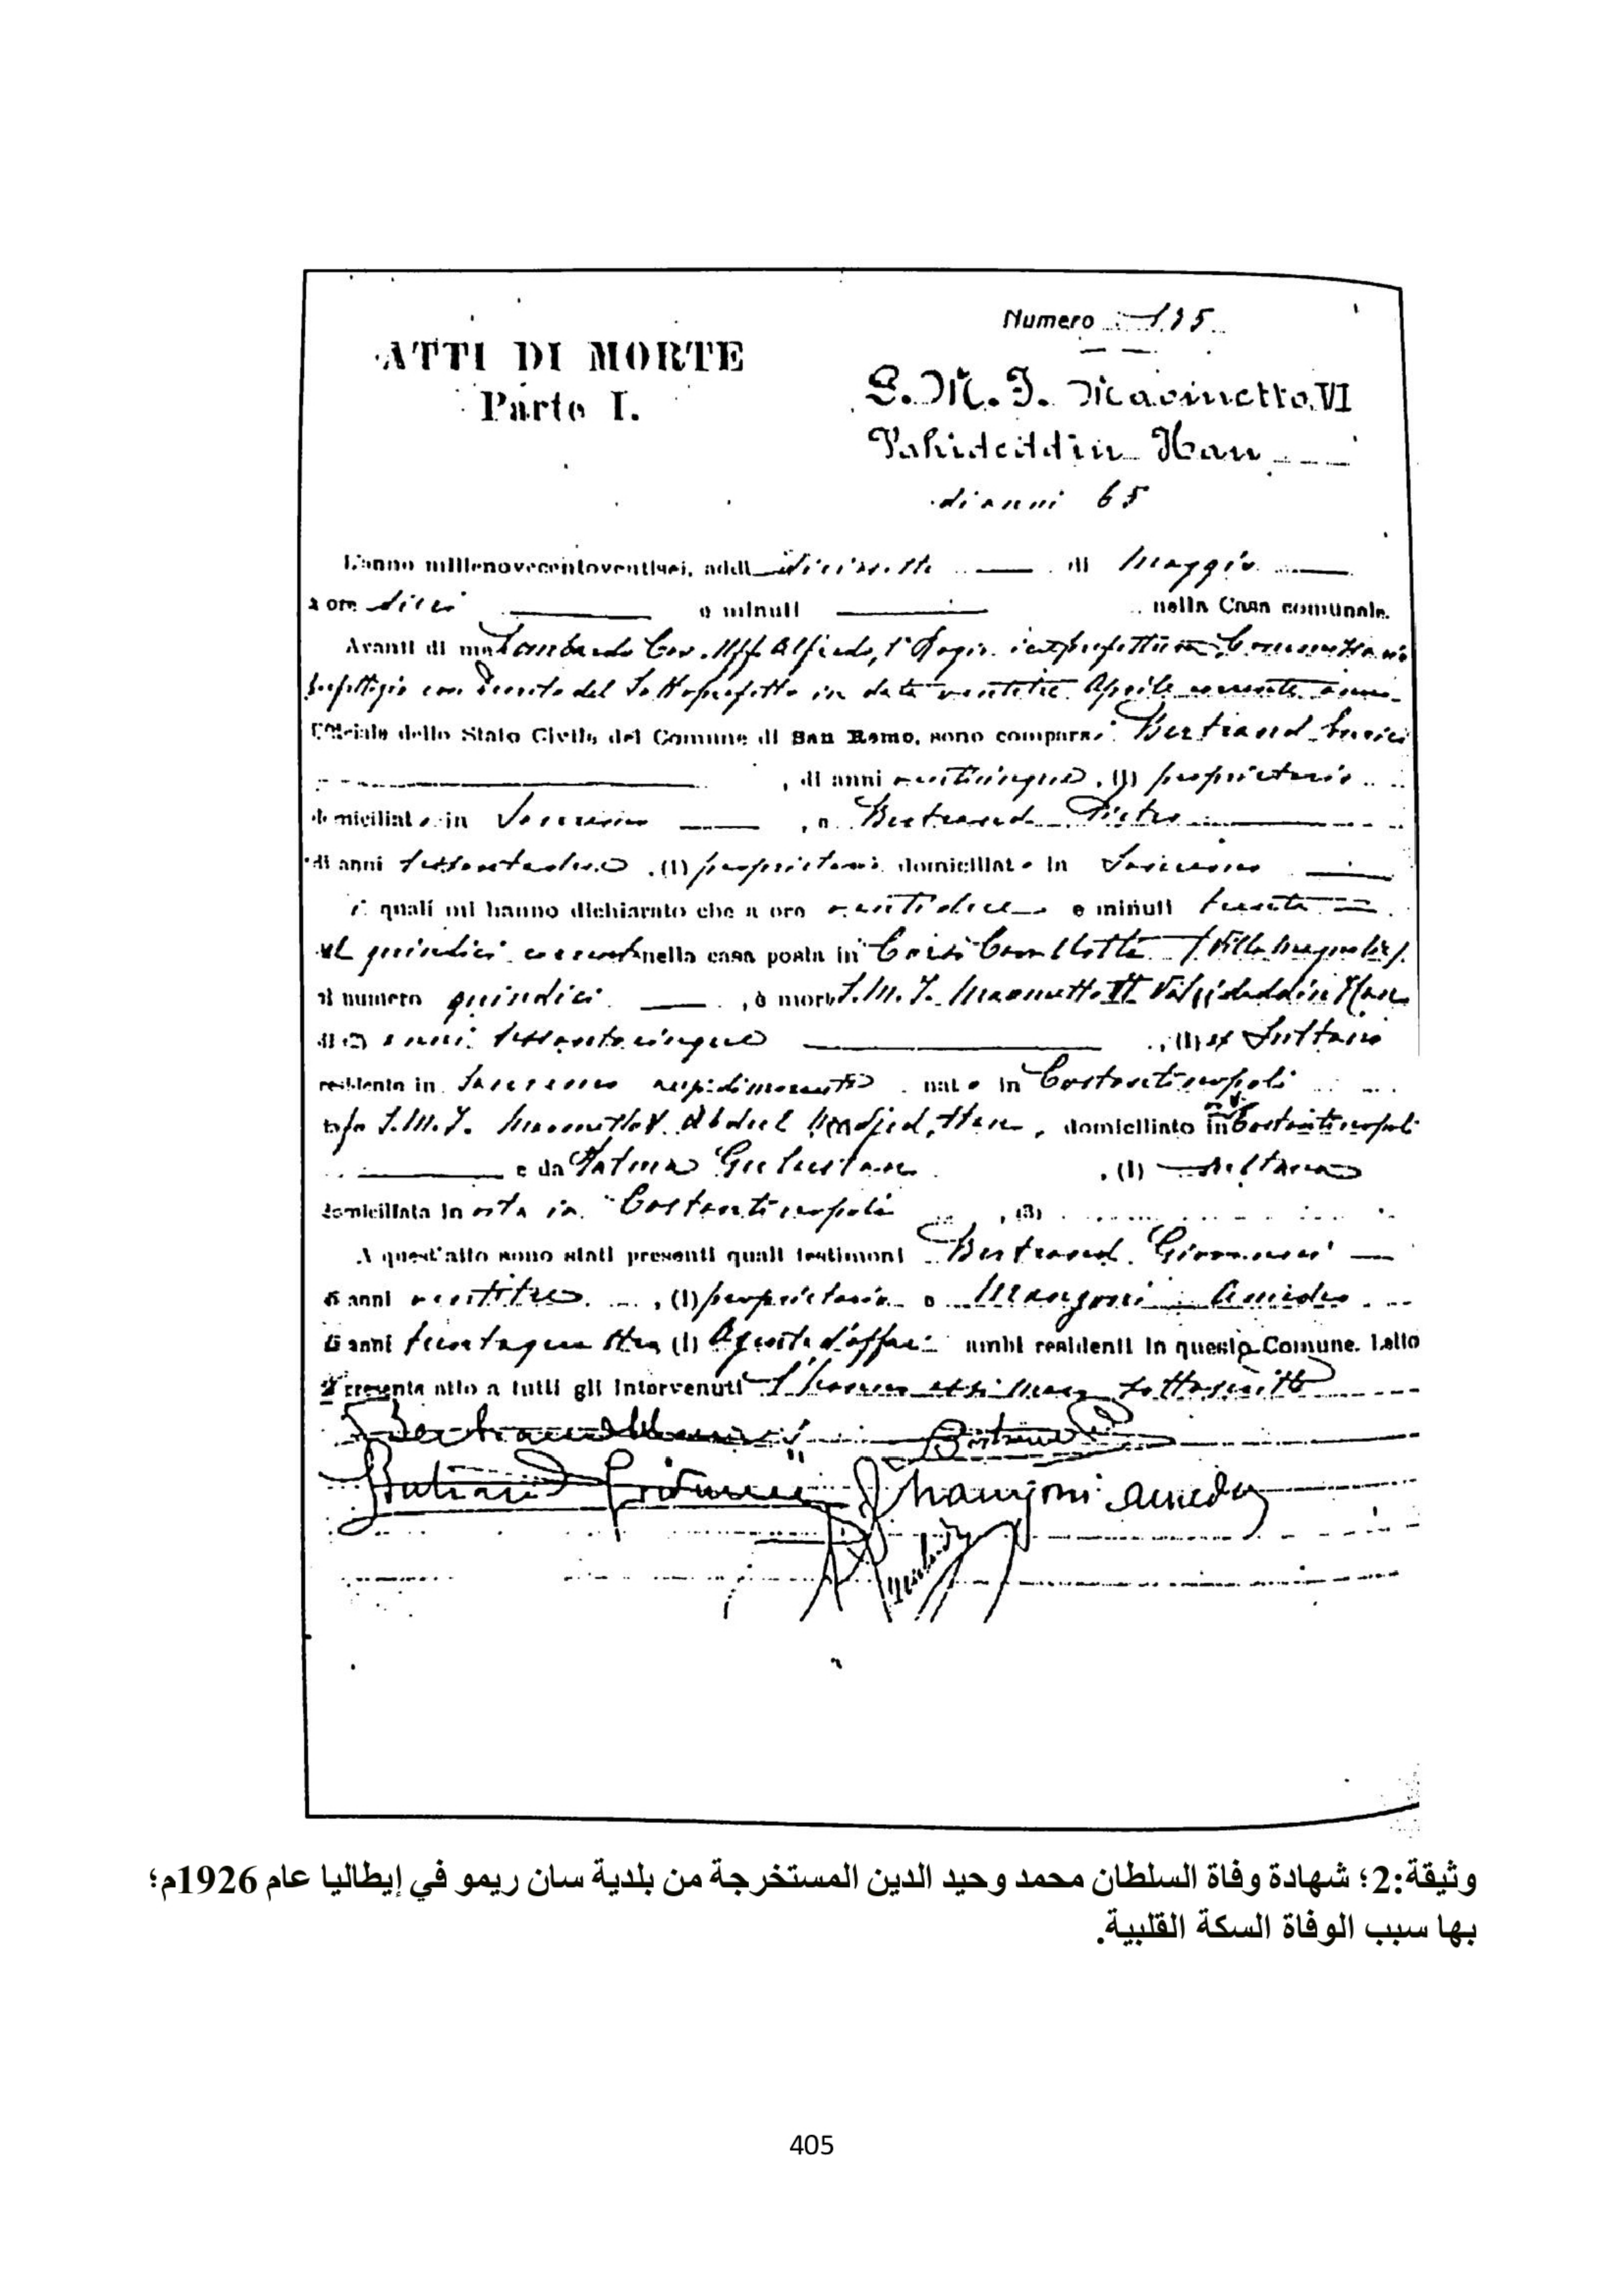 Numero 195
ATTI DI MORTE
Parte I.
S. M. I. Maometto VI
Vahideddin Han
di anni 65
L'anno millenovecentoventisei, addì diciasette di Maggio
a ore dieci e minuti nella Casa comunale.
Avanti di me Lombardo Cav. Uff. Alfredo, Commissario
prefettizio con Decreto del Sottoprefetto in data ventitre Aprile corrente anno
Ufficiale dello Stato Civile del Comune di San Remo, sono comparsi Bertrand
, di anni venticinque, (1) proprietario
domiciliato in Sanremo, e Bertrand Pietro
di anni sessantadue, (1) proprietario domiciliato in Sanremo
i quali mi hanno dichiarato che a ore ventidue e minuti trenta
del quindici corrente nella casa posta in Corso Cavallotti (Villa Magnolie)
al numero quindici, è morto S. M. I. Maometto VI Vahideddin Han
di anni sessantacinque, (1) ex Sultano
residente in Sanremo nato in Costantinopoli
da fu S. M. I. Abdul Medjid Han, domiciliato in Costantinopoli
e da Fatma Gulustan, (1) Sultana
domiciliata in vita in Costantinopoli, (3)
A quest'atto sono stati presenti quali testimoni Bertrand Giovanni
di anni ventitre, (1) proprietario e Mangoni Amedeo
di anni trentaquattro (1) Agente d'affari ambi residenti in questo Comune. Letto
il presente atto a tutti gli intervenuti l'hanno essi meco sottoscritto
Bertrand
Bertrand
Bertrand Giovanni Mangoni Amedeo
وثيقة:2؛ شهادة وفاة السلطان محمد وحيد الدين المستخرجة من بلدية سان ريمو في إيطاليا عام 1926م؛
بها سبب الوفاة السكة القلبية.
405